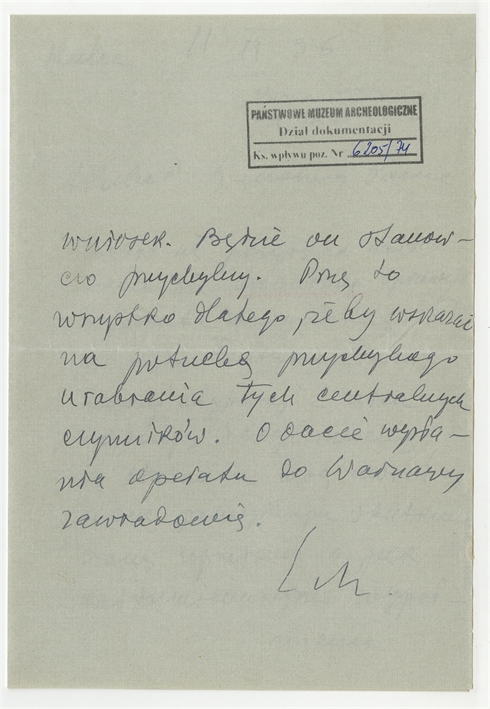 PAŃSTWOWE MUZEUM ARCHEOLOGICZNE
Dział dokumentacji
Ks. wpływu poz. Nr 6205/74
wniosek. Będzie on stanow-
czo przychylny. Piszę to
wszystko dlatego, żeby wskazać
na potrzebę przychylnego
urabiania tych centralnych
czynników. O dacie wysła-
nia operatu do Warszawy
zawiadomię.